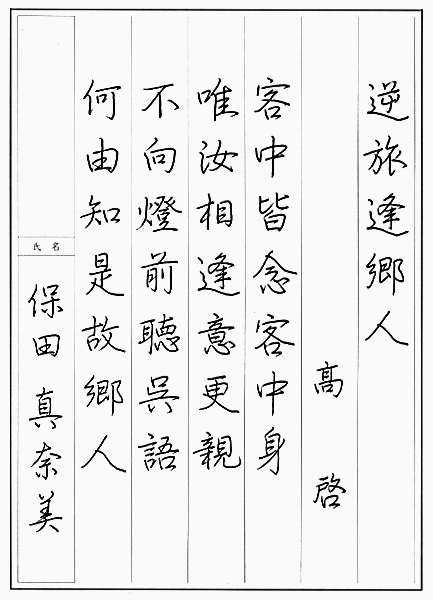 逆旅逢郷人
高啓
客中皆念客中身
唯汝相逢意更親
不向燈前聴呉語
何由知是故郷人
氏名
保田真奈美